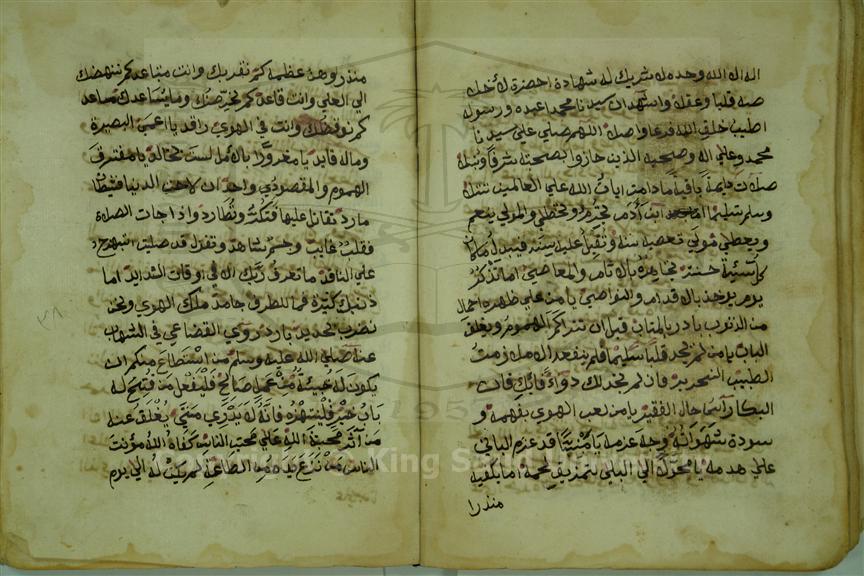 اله الا الله وحده لا شريك له شهادة احضرة لأخل
صه قلبا وعقله واشهد ان سيدنا محمدا عبده ورسوله
اطيب خلق الله فرعا واصله اللهم صلي علي سيدنا
محمد وعلي اله وصحبه الذين حازوا بصحبته شرفا ونبله
صلاة دايمة باقية مادامت ايات الله علي العالمين تتلا
وسلم تسليما ابن آدم تجترم وتخطي والمولي ينعم
ويعطي مولي تعصيه سنة وتقبل عليه فيبدل مكان
كل سيئة حسنة بالاثام والمعاصي اما تذكر
يوم يوخذ بالاقدام والنواصي يا من علي ظهره احمال
من الذنوب بادر بالمتاب قبل ان تتراكم الهموم ويغلق
الباب يا من لم يجد قلبا سليما فلم ينفعه الا ملازمت
الطبيب النحرير فان لم يجد لك دواء فابك فان
البكا رأسمال الفقير يا من لعب الهوي بفهمه و
سودة شهواته وجه عزمه يا مبنيا قد عزم الباني
علي هدمه يا محمولا الي البلي بتمزيق لحمه اما يكفيه
منذرا
منذر وهن عظمه كم نقربك وانت متباعد كم ننهضك
الي العلي وانت قاعد كم نحرضك وما يساعدك ساعد
كم نوقضك وانت في الهوي راقد يا اعمي البصيرة
وماله قايد يا مغرورا بالامل لست بخالد يا مفترق
الهموم والمقصود واحد ان لاحت الدنيا فشيطان
مارد تقاتل عليها وتطارد واذا جات الصلاة
فقلب غايب وجسم شاهد وتقول قد صليت ابهرج
علي الناقد ما تعرف ربك الا في اوقات الشدايد اما
ذنبك كثيرة فما للطرف جامد ملاك الهوي ونحن
نضرب بحديد بارد روي القضاعي في الشهاب
عنه صلي الله عليه وسلم من استطاع منكم ان
يكون له خبيئة من عمل صالح فليفعل من فتح له
باب خير فلينتهزه فانه لا يدري متي يغلق عنه
من آثر محبة الله علي محبت الناس كفاه الله مؤنت
الناس من نزع يده من الطاعة لم يكن له الي يوم